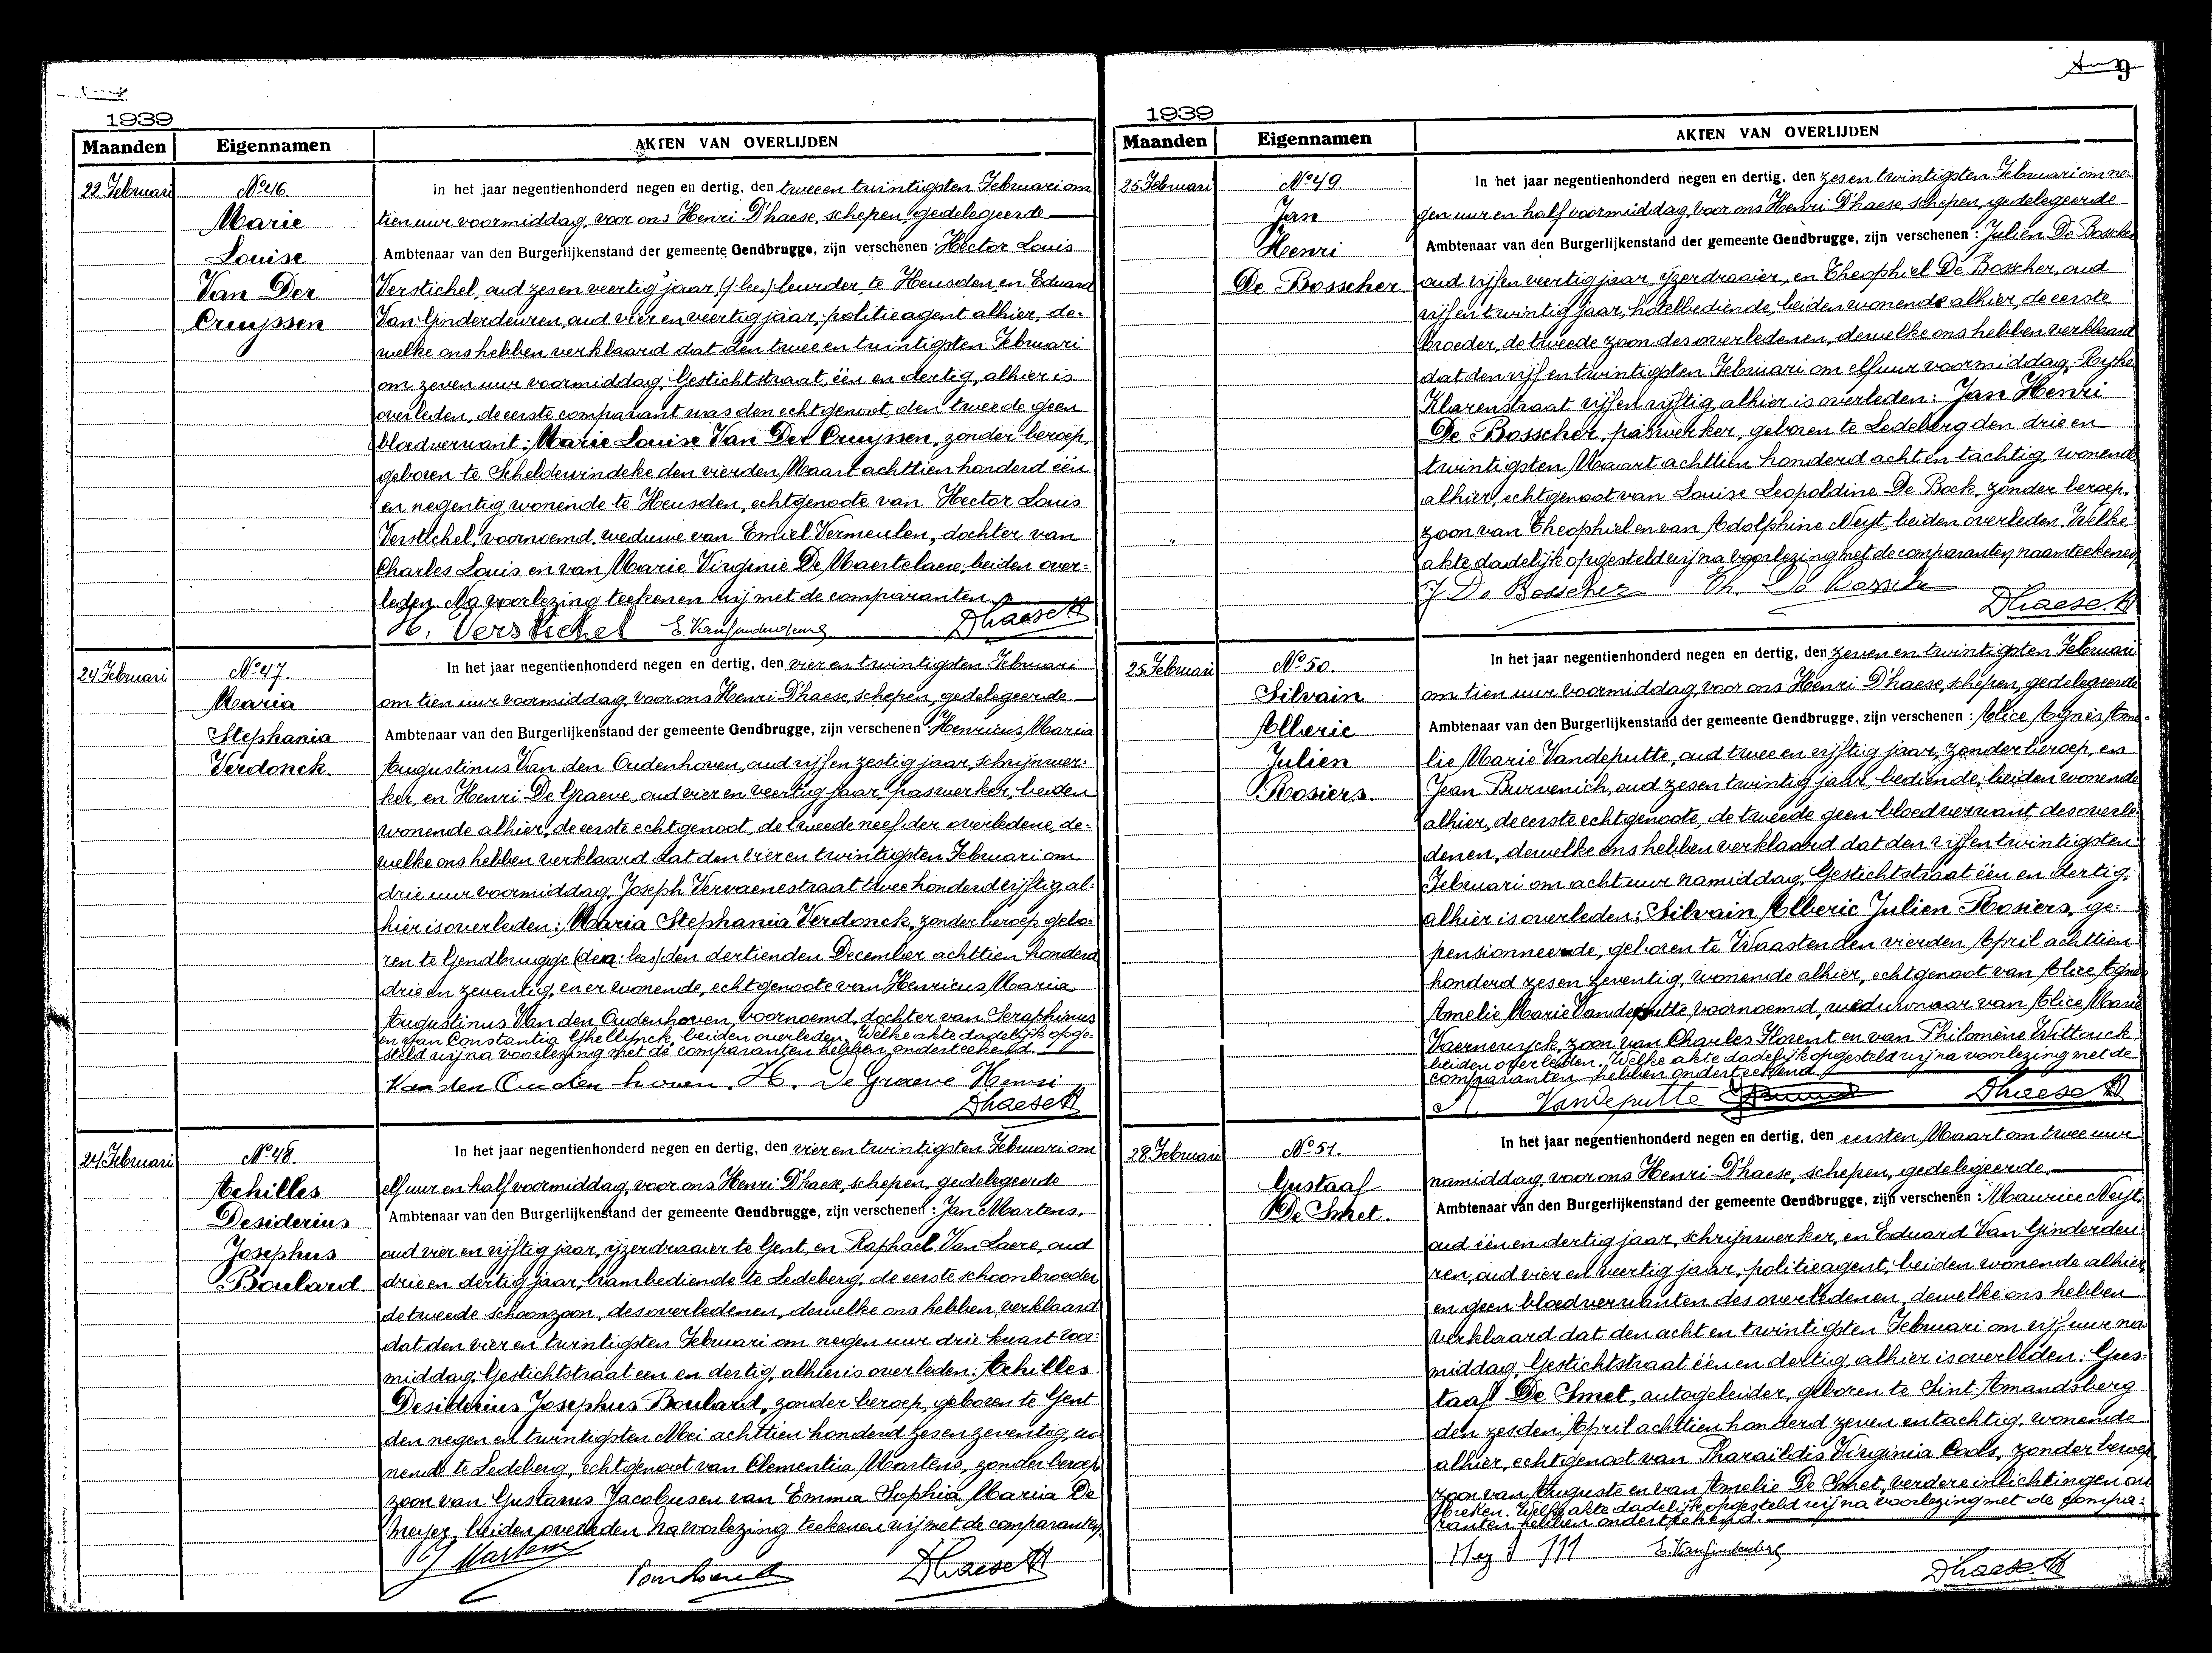 1939
Maanden Eigennamen AKTEN VAN OVERLIJDEN
22 Februari
No 46
Marie
Louise
Van Der
Cruyssen
In het jaar negentienhonderd negen en dertig, den twee en twintigsten Februari om
tien uur voormiddag, voor ons Henri D'haese, schepen, gedelegeerde
Ambtenaar van den Burgerlijkenstand der gemeente Gendbrugge, zijn verschenen: Hector Louis
Verstichel, oud zes en veertig jaar (/ lees) leurder, te Heusden, en Eduard
Van Ginderdeuren, oud vier en veertig jaar, politieagent alhier, de-
welke ons hebben verklaard dat den twee en twintigsten Februari
om zeven uur voormiddag, Gestichtstraat, één en dertig, alhier is
overleden, de eerste comparant was den echtgenoot, den tweede geen
bloedverwant: Marie Louise Van Der Cruyssen, zonder beroep,
geboren te Scheldewindeke den vierden Maart achttien honderd één
en negentig, wonende te Heusden, echtgenoote van Hector Louis
Verstichel, voornoemd, weduwe van Emiel Vermeulen, dochter van
Charles Louis en van Marie Virginie De Maertelaere, beiden over-
leden. Na voorlezing teekenen wij met de comparanten.
H. Verstichel E. Vanginderdeuren Dhaese H
24 Februari
No 47.
Maria
Stephania
Verdonck.
In het jaar negentienhonderd negen en dertig, den vier en twintigsten Februari
om tien uur voormiddag, voor ons Henri D'haese, schepen, gedelegeerde
Ambtenaar van den Burgerlijkenstand der gemeente Gendbrugge, zijn verschenen: Henricus Maria
Augustinus Van den Oudenhoven, oud vijf en zestig jaar, schrijnwer-
ker, en Henri De Graeve, oud vier en veertig jaar, paswerker, beiden
wonende alhier, de eerste echtgenoot, de tweede neef der overledene, de-
welke ons hebben verklaard dat den vier en twintigsten Februari om
drie uur voormiddag, Joseph Vervaenestraat twee honderd vijftig, al-
hier is overleden: Maria Stephania Verdonck, zonder beroep, gebo-
ren te Gendbrugge (den: lees) den dertienden December achttien honderd
drie en zeventig, en er wonende, echtgenoote van Henricus Maria
Augustinus Van den Oudenhoven, voornoemd, dochter van Seraphinus
en van Constantia Ghellynck, beiden overleden. Welke akte dadelijk opge-
steld wij na voorlezing met de comparanten hebben onderteekend.
Van den Ouden hoven. H. De Graeve Henri
Dhaese H
24 Februari
No 48.
Achilles
Desiderius
Josephus
Boulard.
In het jaar negentienhonderd negen en dertig, den vier en twintigsten Februari om
elf uur en half voormiddag, voor ons Henri D'haese, schepen, gedelegeerde
Ambtenaar van den Burgerlijkenstand der gemeente Gendbrugge, zijn verschenen: Jan Martens,
oud vier en vijftig jaar, ijzerdraaier te Gent, en Raphaël Van Laere, oud
drie en dertig jaar, trambediende te Ledeberg, de eerste schoonbroeder
de tweede schoonzoon, des overledenen, dewelke ons hebben verklaard
dat den vier en twintigsten Februari om negen uur drie kwart voor-
middag, Gestichtstraat een en dertig, alhier is overleden: Achilles
Desiderius Josephus Boulard, zonder beroep, geboren te Gent
den negen en twintigsten Mei achttien honderd zes en zeventig, wo-
nende te Ledeberg, echtgenoot van Clementia Martens, zonder beroep
zoon van Gustavus Jacobus en van Emma Sophia Maria De
Meyer, beiden overleden. Na voorlezing teekenen wij met de comparanten.
J Martens Dhaese H
1939
Maanden Eigennamen AKTEN VAN OVERLIJDEN
25 Februari
No 49
Jan
Henri
De Bosscher.
In het jaar negentienhonderd negen en dertig, den zes en twintigsten Februari om ne-
gen uur en half voormiddag, voor ons Henri D'haese, schepen, gedelegeerde
Ambtenaar van den Burgerlijkenstand der gemeente Gendbrugge, zijn verschenen: Julien De Bosscher
oud vijf en veertig jaar, ijzerdraaier, en Theophiel De Bosscher, oud
vijf en twintig jaar, hotelbediende, beiden wonende alhier, de eerste
broeder, de tweede zoon des overledenen, dewelke ons hebben verklaard
dat den vijf en twintigsten Februari om elf uur voormiddag, Rijke
Klarenstraat vijf en vijftig, alhier is overleden: Jan Henri
De Bosscher, paswerker, geboren te Ledeberg den drie en
twintigsten Maart achttien honderd acht en tachtig, wonende
alhier, echtgenoot van Louise Leopoldine De Bock, zonder beroep,
zoon van Theophiel en van Adolphine Neyt, beiden overleden. Welke
akte dadelijk opgesteld wij na voorlezing met de comparanten naamteekenen
J De Bosscher Th. De Bossche Dhaese. H
25 Februari
No 50.
Silvain
Alberic
Julien
Rosiers.
In het jaar negentienhonderd negen en dertig, den zeven en twintigsten Februari
om tien uur voormiddag, voor ons Henri D'haese, schepen, gedelegeerde
Ambtenaar van den Burgerlijkenstand der gemeente Gendbrugge, zijn verschenen: Alice Agnès Ame-
lie Marie Vandeputte, oud twee en vijftig jaar, zonder beroep, en
Jean Burvenich, oud zes en twintig jaar, bediende, beiden wonende
alhier, de eerste echtgenoote, de tweede geen bloedverwant, des overle-
denen, dewelke ons hebben verklaard dat den vijf en twintigsten
Februari om acht uur namiddag, Gestichtstraat één en dertig,
alhier is overleden: Silvain Alberic Julien Rosiers, ge-
pensionneerde, geboren te Waasten den vierden April achttien
honderd zes en zeventig, wonende alhier, echtgenoot van Alice Agnes
Amelie Marie Vandeputte voornoemd, weduwnaar van Alice Marie
Vaernewyck, zoon van Charles Florent en van Philomène Wittouck
beiden overleden. Welke akte dadelijk opgesteld wij na voorlezing met de
comparanten hebben onderteekend.
A. Vandeputte Dhaese H
28 Februari
No 51.
Gustaaf
De Smet.
In het jaar negentienhonderd negen en dertig, den eersten Maart om twee uur
namiddag, voor ons Henri D'haese, schepen, gedelegeerde.
Ambtenaar van den Burgerlijkenstand der gemeente Gendbrugge, zijn verschenen: Maurice Neyt,
oud één en dertig jaar, schrijnwerker, en Eduard Van Ginderdeu-
ren, oud vier en veertig jaar, politieagent, beiden wonende alhier
en geen bloedverwanten des overledenen, dewelke ons hebben
verklaard dat den acht en twintigsten Februari om vijf uur na-
middag, Gestichtstraat één en dertig, alhier is overleden: Gus-
taaf De Smet, autogeleider, geboren te Sint Amandsberg
den zesden April achttien honderd zeven en tachtig, wonende
alhier, echtgenoot van Pharaïldis Virginia Cools, zonder beroep
zoon van Auguste en van Amelie De Smet, verdere inlichtingen on-
tbreken. Welke akte dadelijk opgesteld wij na voorlezing met de compa-
ranten hebben onderteekend.
E. Vanginderdeuren Dhaese. H